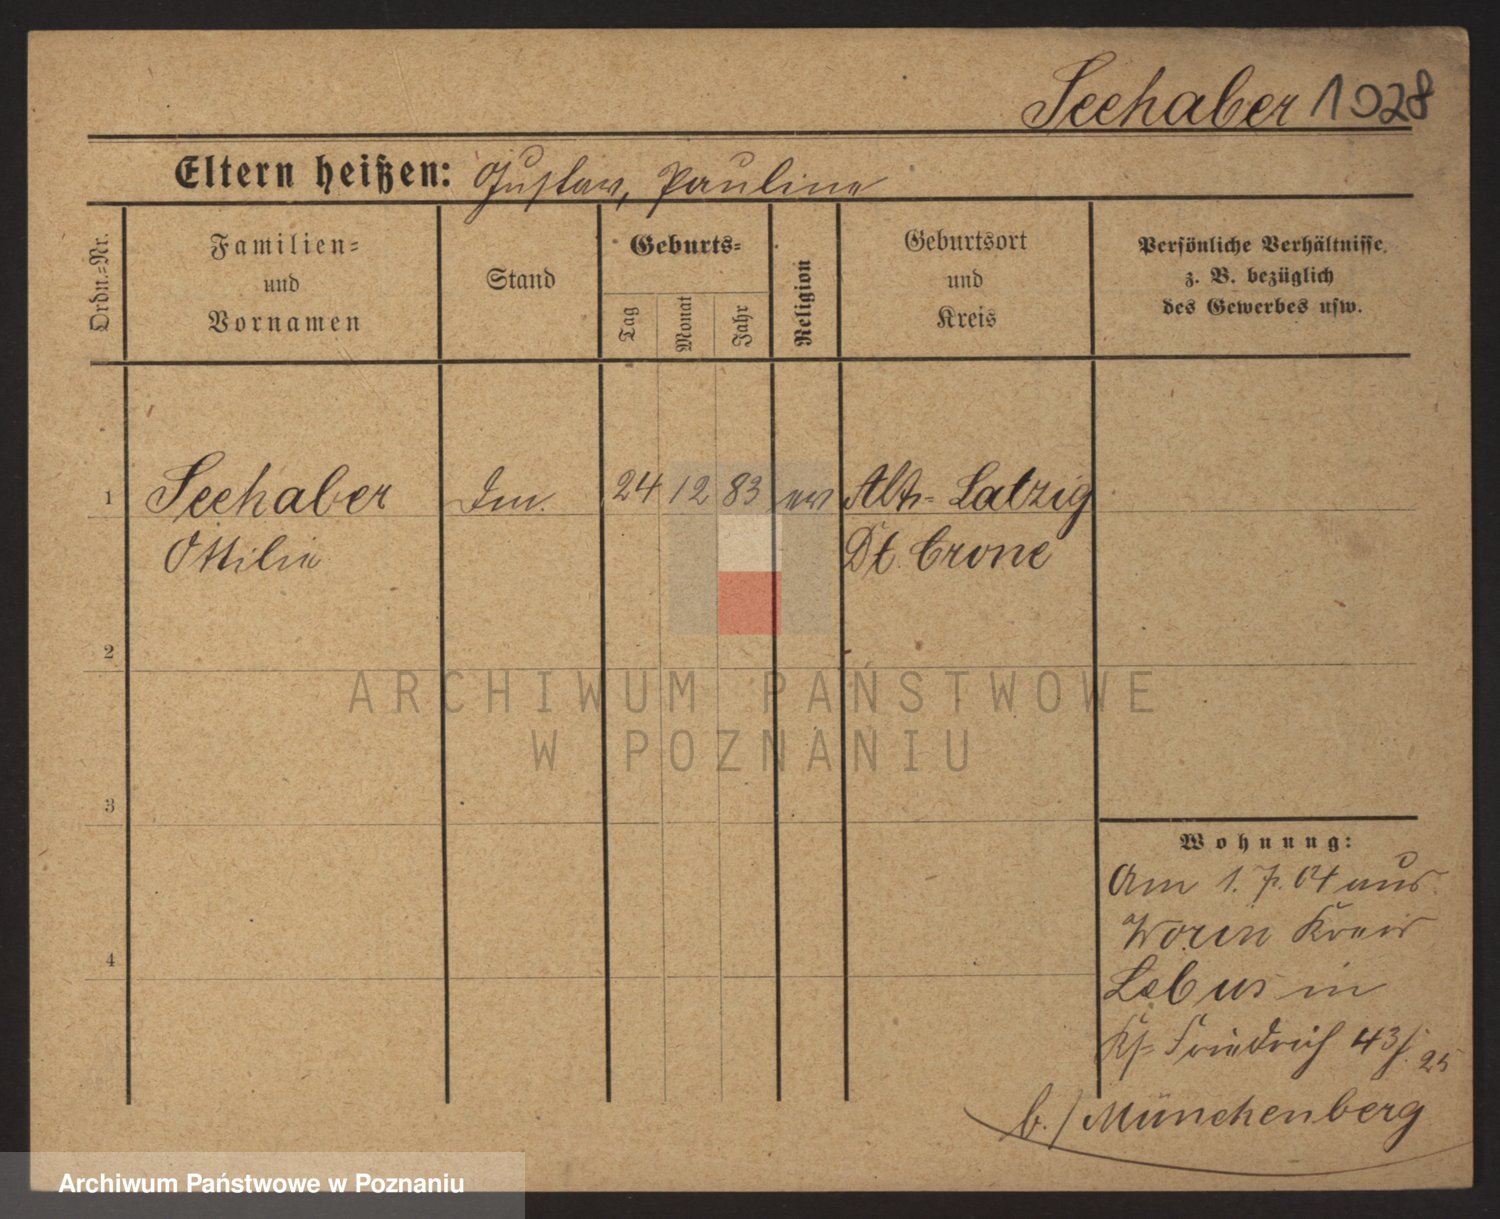 Seehaber 1028
Eltern heißen: Gustav, Pauline
Ordn.=Nr.
Familien=
und
Vornamen
Stand
Geburts=
Tag
Monat
Jahr
Religion
Geburtsort
und
Kreis
Persönliche Verhältnisse,
z. B. bezüglich
des Gewerbes usw.
1 Seehaber 24 12 83 ev Alt- Latzig
Ottilie Dt. Crone
2
3
4
ARCHIWUM PAŃSTWOWE
W POZNANIU
Wohnung:
Am 1. 7. 04 aus
Worin Kreis
Lebus in
Friedrich 43 25
b./Münchenberg
Archiwum Państwowe w Poznaniu